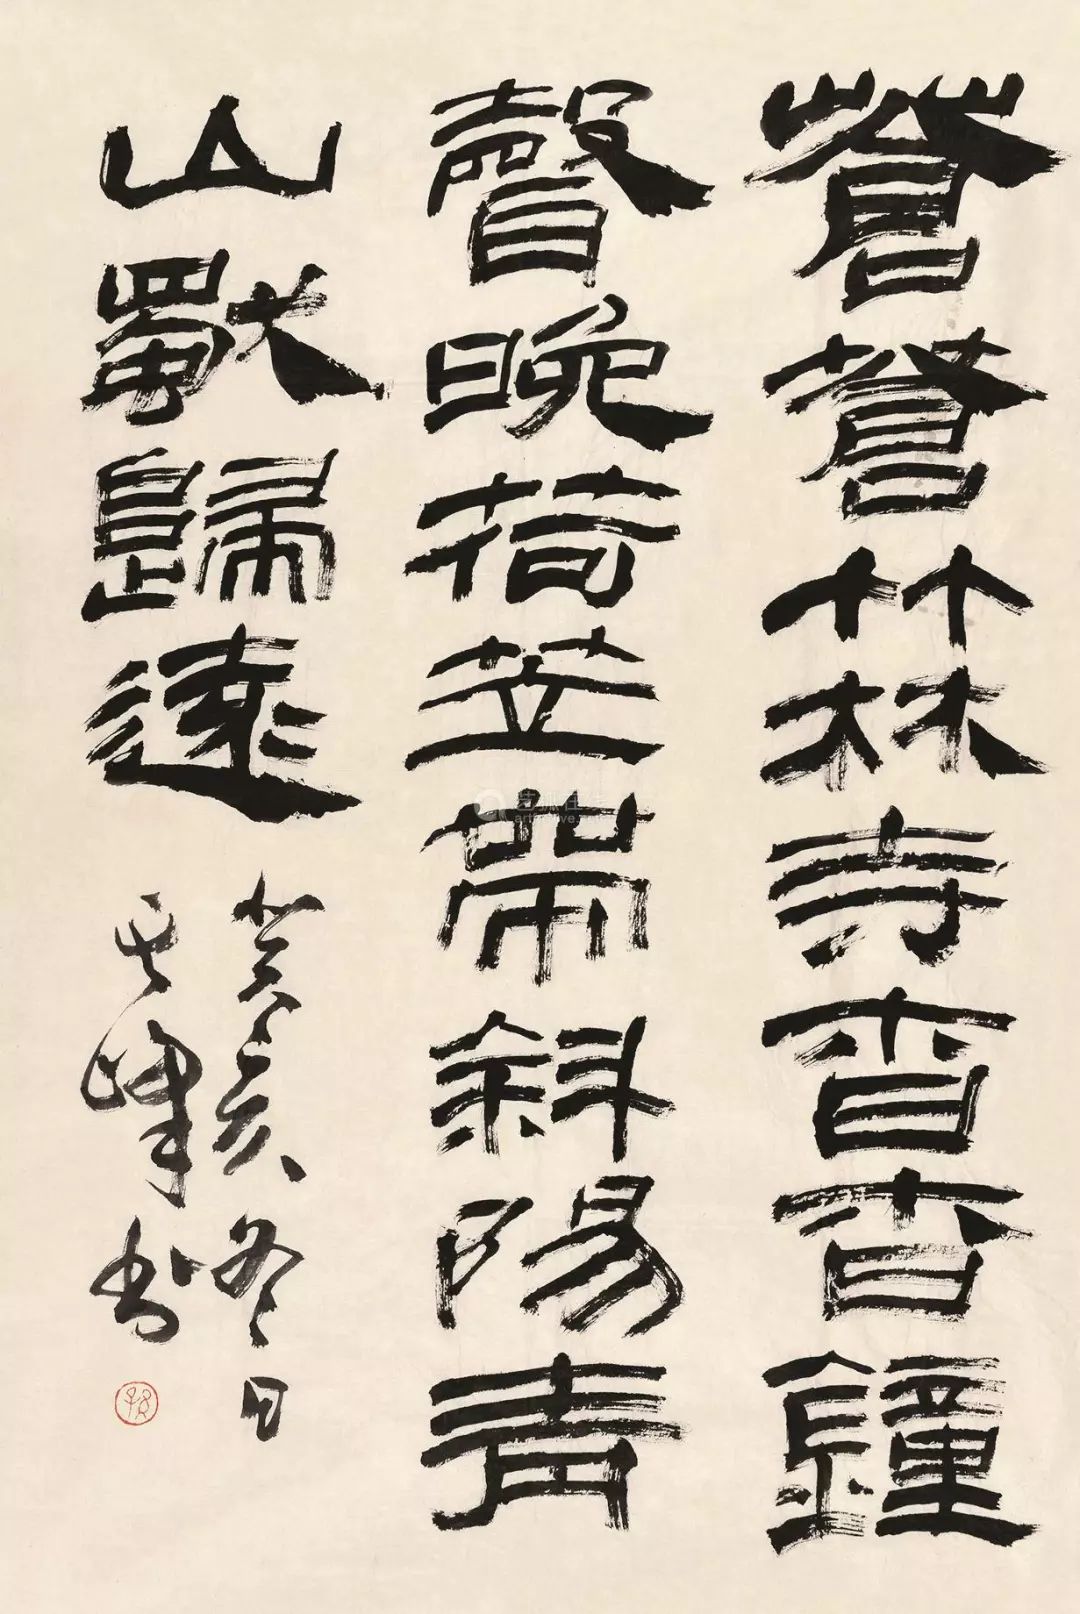 蒼蒼竹林寺杳杳鐘
聲晚荷笠帶斜陽青
山獨歸遠
癸亥冬日
其峰書